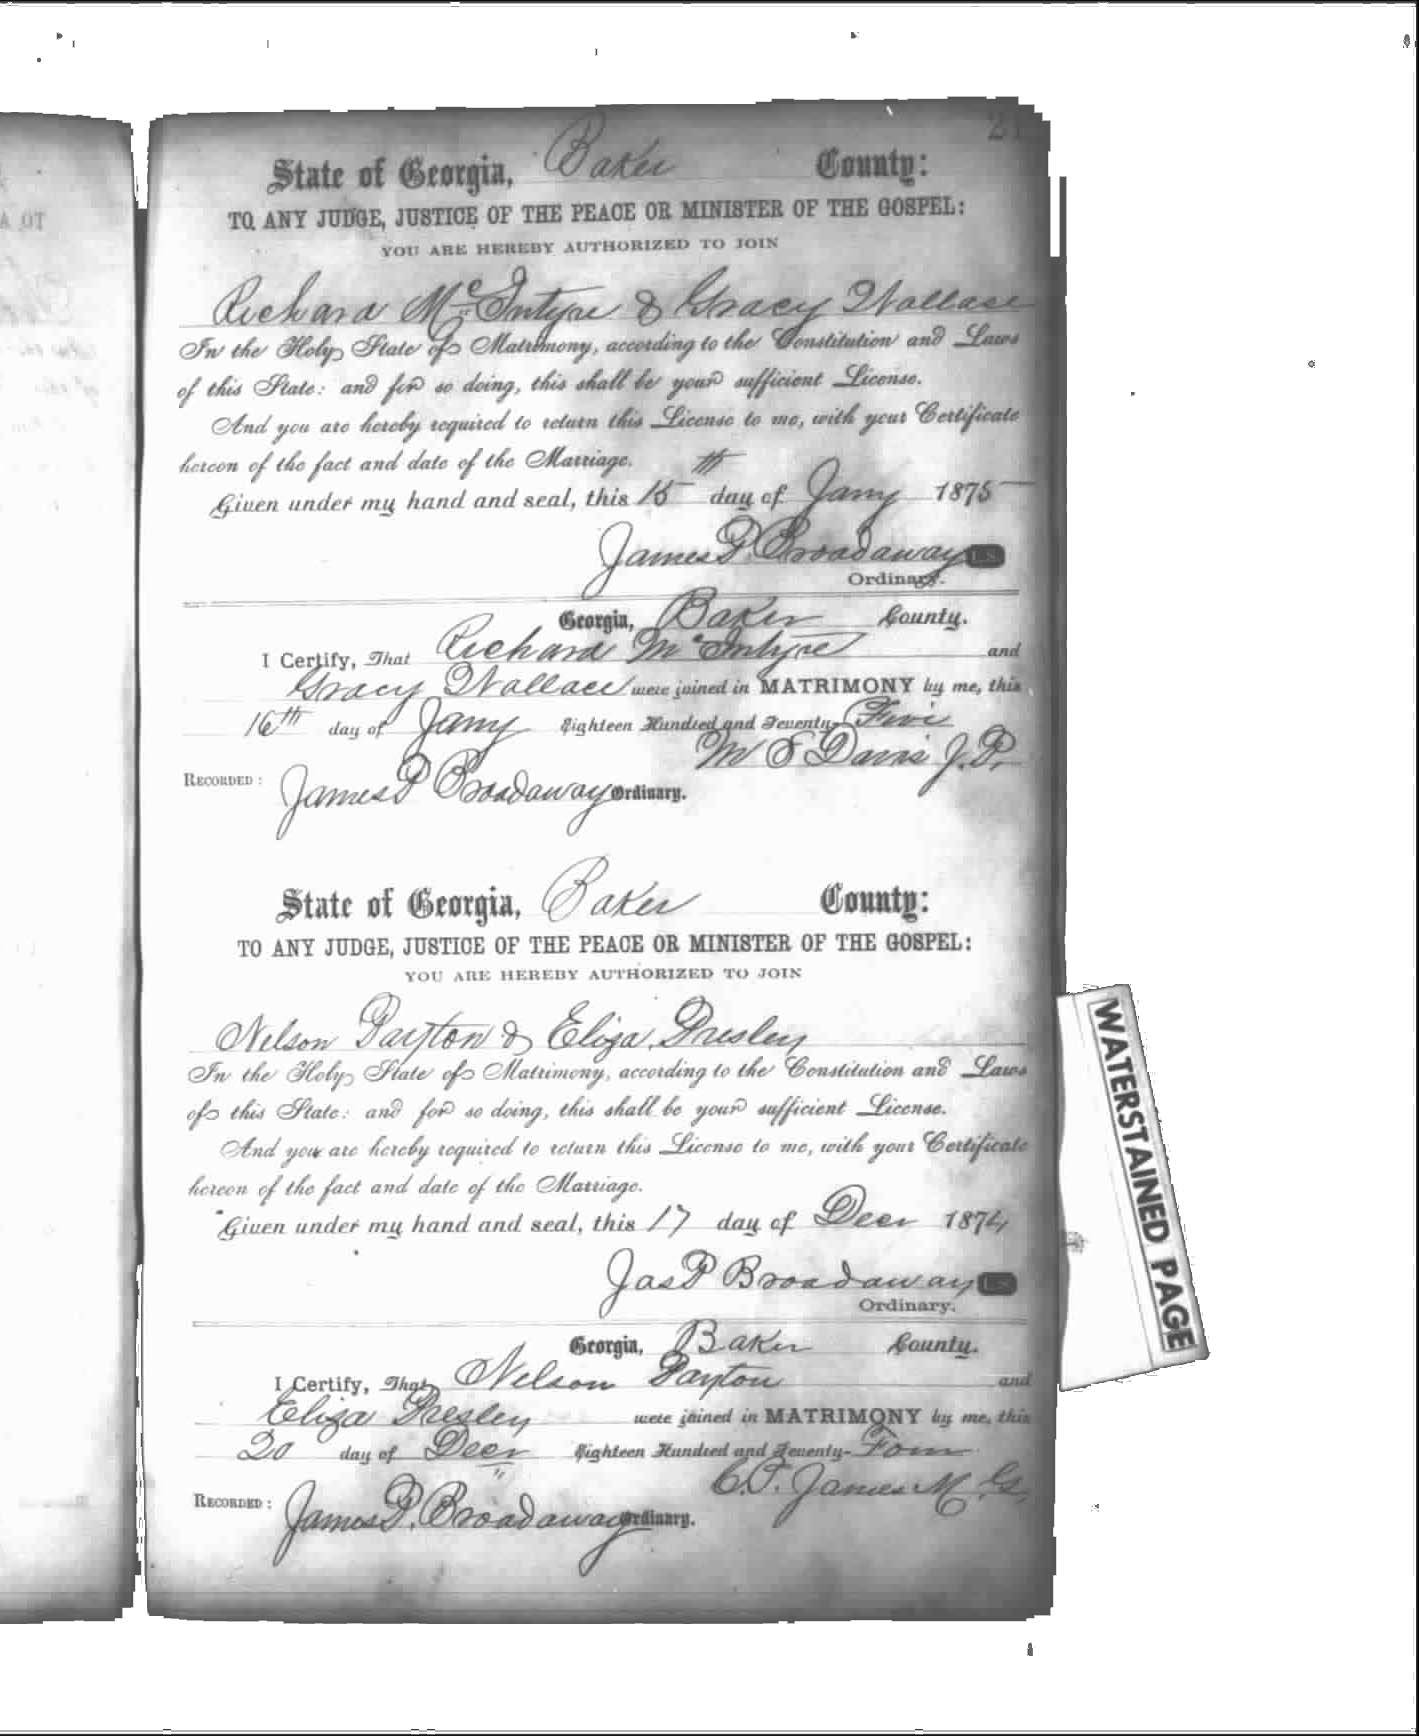 State of Georgia, Baker County:
TO ANY JUDGE, JUSTICE OF THE PEACE OR MINISTER OF THE GOSPEL:
YOU ARE HEREBY AUTHORIZED TO JOIN
Richard McIntyre & Gracy Wallace
In the Holy State of Matrimony, according to the Constitution and Laws
of this State: and for so doing, this shall be your sufficient License.
And you are hereby required to return this License to me, with your Certificate
hereon of the fact and date of the Marriage.
Given under my hand and seal, this 15th day of Jany 1875
James P. Broadaway L.S.
Ordinary.
Georgia, Baker County.
I Certify, That Richard McIntyre and
Gracy Wallace were joined in MATRIMONY by me, this
16th day of Jany Eighteen Hundred and Seventy-Five
M S Davis J.P.
RECORDED: James P Broadaway Ordinary.
State of Georgia, Baker County:
TO ANY JUDGE, JUSTICE OF THE PEACE OR MINISTER OF THE GOSPEL:
YOU ARE HEREBY AUTHORIZED TO JOIN
Nelson Payton & Eliza Presley
In the Holy State of Matrimony, according to the Constitution and Laws
of this State: and for so doing, this shall be your sufficient License.
And you are hereby required to return this License to me, with your Certificate
hereon of the fact and date of the Marriage.
Given under my hand and seal, this 17 day of Decr 1874
Jas P Broadaway L.S.
Ordinary.
Georgia, Baker County.
I Certify, That Nelson Payton and
Eliza Presley were joined in MATRIMONY by me, this
20 day of Decr Eighteen Hundred and Seventy-Four
C.T. James M.G.
RECORDED: James P. Broadaway Ordinary.
WATERSTAINED PAGE